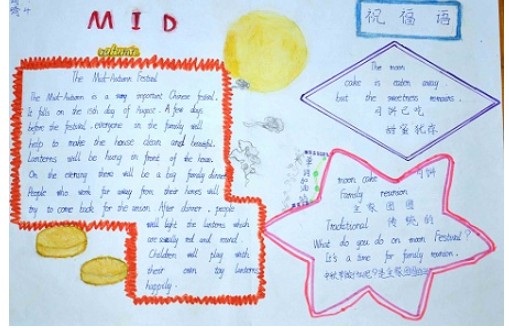 MID
autumn
祝福语
The Mid-Autumn Festival
The Mid-Autumn is a very important Chinese festival.
It falls on the 15th day of August. A few days
before the festival, everyone in the family will
help to make the house clean and beautiful.
Lanterns will be hung in front of the house.
On the evening there will be a big family dinner.
People who work far away from their homes will
try to come back for the union. After dinner, people
will light the lanterns which
are usually red and round.
Children will play with
their own toy lantens
happily.
The moon
cake is eaten away.
but the sweetness remains.
月饼已吃
甜蜜犹存
moon cake 月饼
Family reunion
全家团圆
Traditional 传统的
What do you do on moon Festival?
It's a time for family reunion.